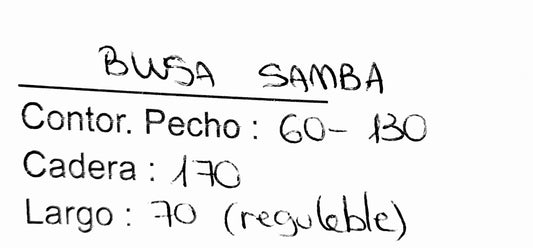 BLUSA SAMBA
Contor. Pecho : 60 - 130
Cadera : 170
Largo : 70 (regulable)